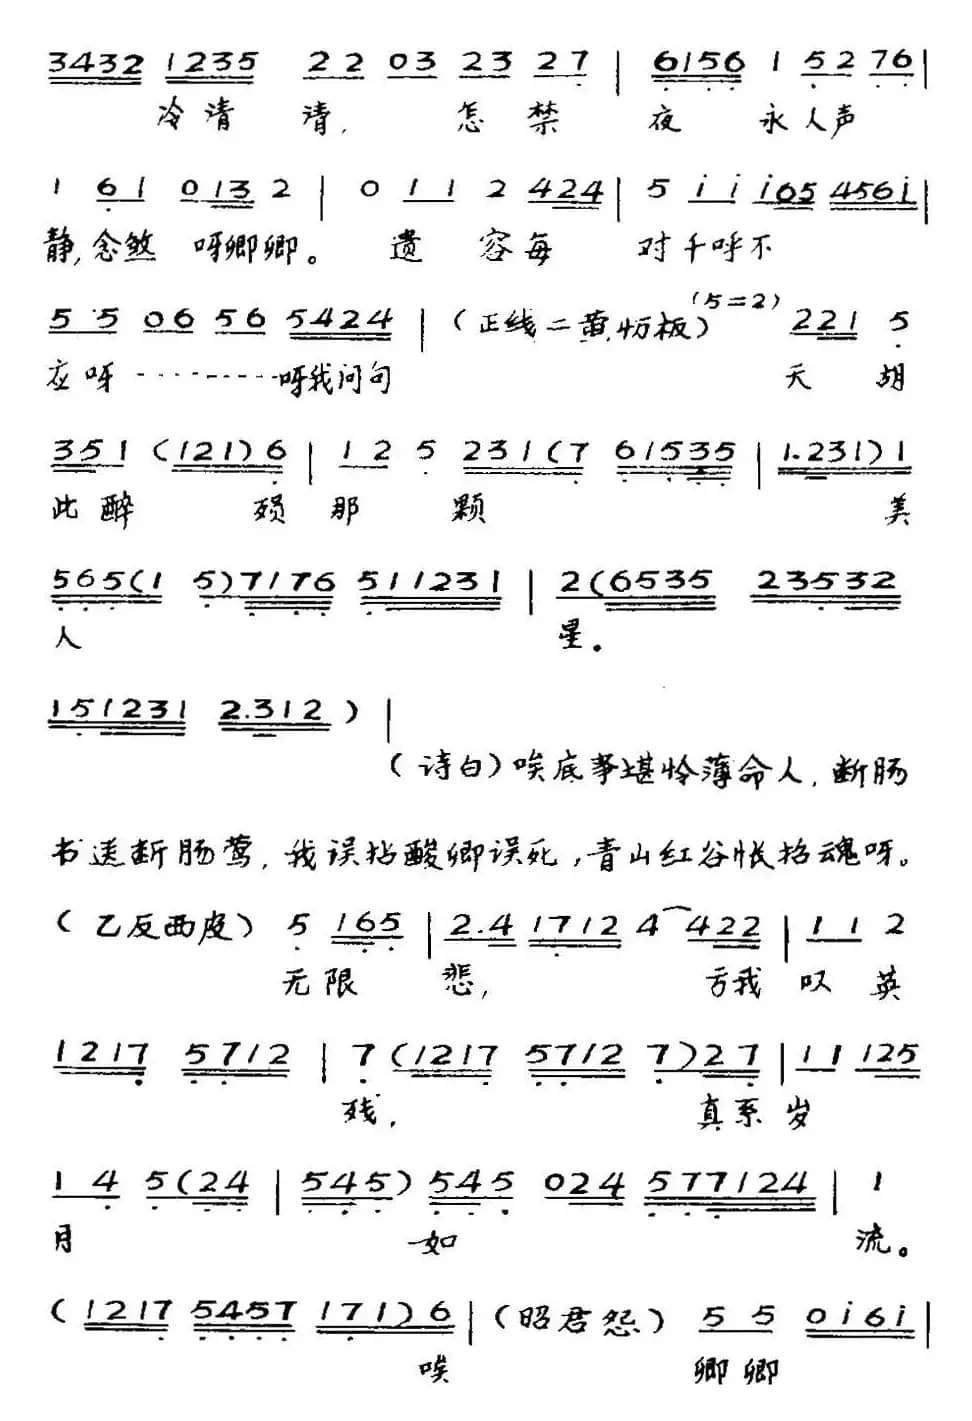 3432 1235 22 03 23 27 | 6156 1 52 76 |
冷清 清, 怎禁 夜 永人声
1 61 0132 | 0 11 2 424 | 5 i i i65 456i |
静,念煞 呀卿卿。 遗 容每 对千呼不
55 06 56 5424 | (正线二黄,慢板) (5=2) 221 5
应呀 ········ 呀我问句 天 胡
351 (121) 6 | 12 5 231 (7 61535 | 1.231) 1
此醉 殒 那 颗 美
565 (1 5) 7176 511231 | 2 (6535 23532
人 星。
151231 2.312 ) |
(诗白) 唉底事堪怜薄命人, 断肠
书送断肠莺, 我误拈酸卿误死, 青山红谷怅招魂呀。
(乙反西皮) 5 165 | 2.4 1712 4 422 | 11 2
无限 悲, 我叹 英
1217 5712 | 7 (1217 5712 7) 27 | 11 125
残, 真系岁
1 4 5 (24 | 545) 545 024 577124 | 1
月 如 流。
(1217 5457 171) 6 | (昭君怨) 55 0i6i |
唉 卿卿